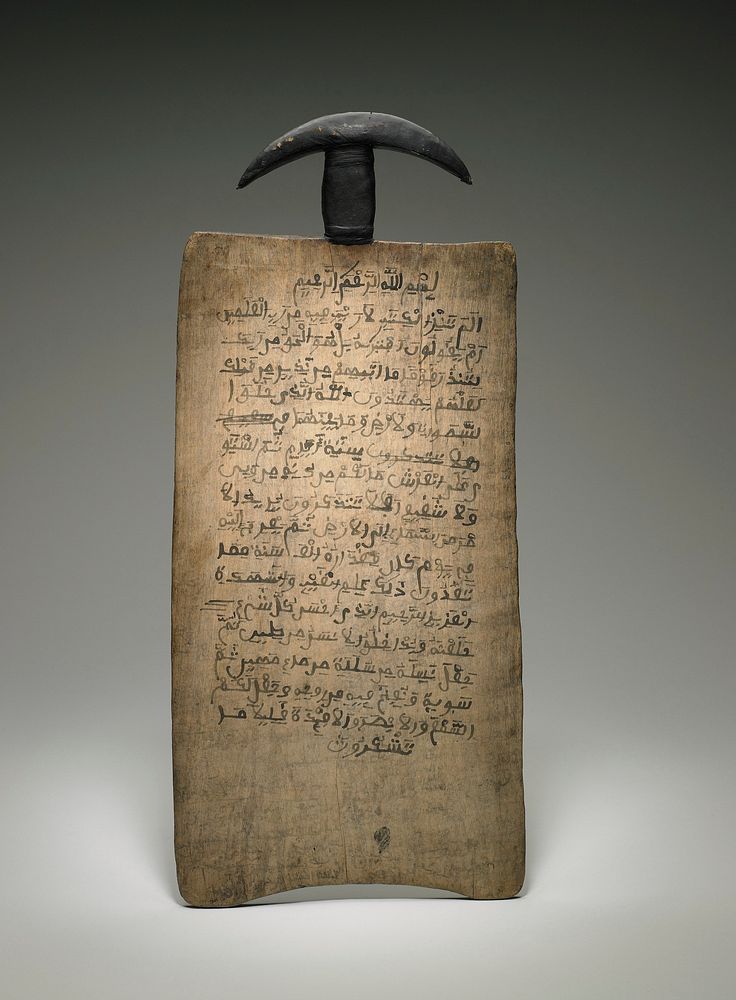 بسم الله الرحمن الرحيم
الم تنزيل الكتب لا ريب فيه من رب العلمين
ام يقولون افتريه بل هو الحق من ربك
لتنذر قوما ما اتيهم من نذير من قبلك
لعلهم يهتدون الله الذي خلق ا
لسموات والارض وما بينهما في
افلا تتذكرون ستة ايام ثم استو
ى على العرش ما لكم من دونه من ولي
ولا شفيع افلا تتذكرون يدبر الا
مر من السماء الى الارض ثم يعرج اليه
في يوم كان مقداره الف سنة مما
تعدون ذلك علم الغيب والشهدة
العزيز الرحيم الذي احسن كل شيء
خلقه وبدا خلق الانسن من طين ثم
جعل نسله من سللة من ماء مهين ثم
سويه ونفخ فيه من روحه وجعل لكم
السمع والابصر والافئدة قليلا ما
تشكرون